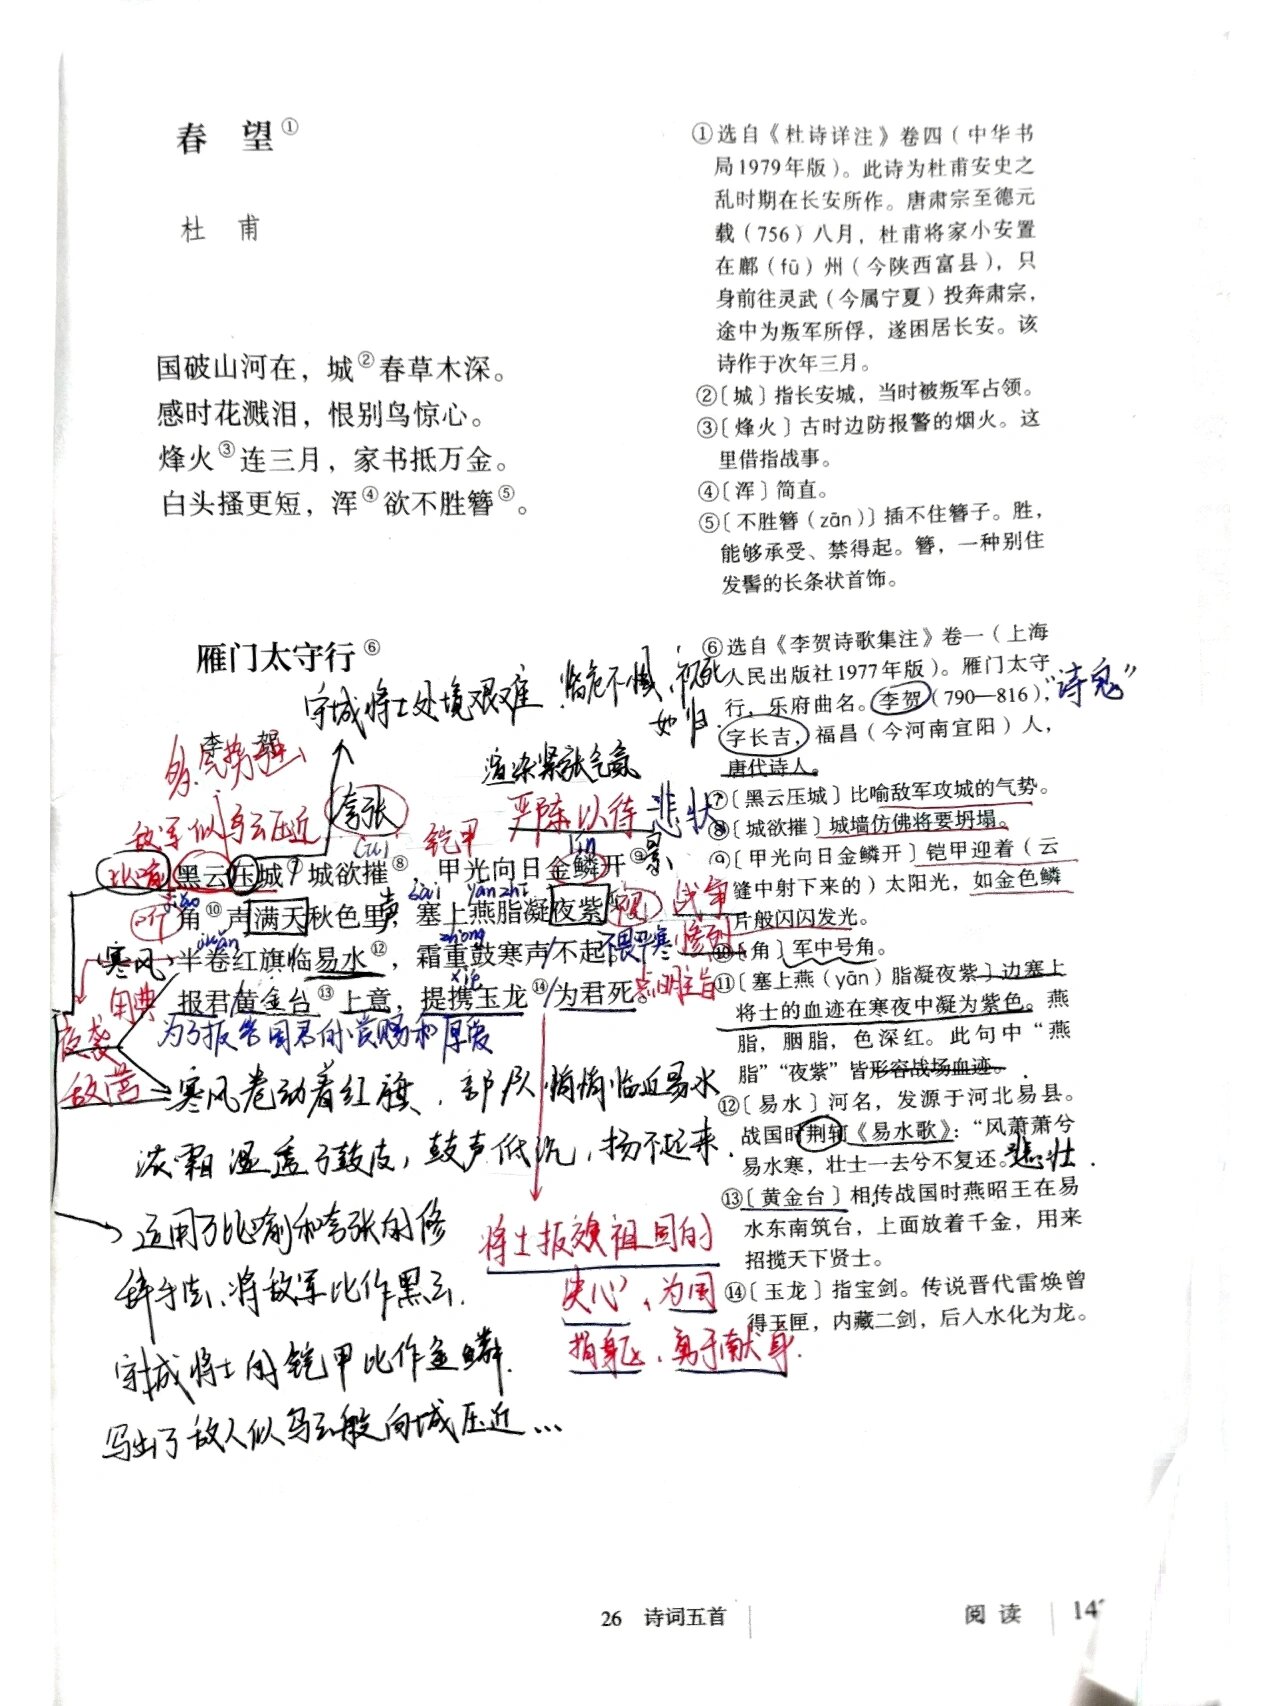 春 望①
杜 甫
国破山河在，城②春草木深。
感时花溅泪，恨别鸟惊心。
烽火③连三月，家书抵万金。
白头搔更短，浑④欲不胜簪⑤。
①选自《杜诗详注》卷四（中华书
局1979年版）。此诗为杜甫安史之
乱时期在长安所作。唐肃宗至德元
载（756）八月，杜甫将家小安置
在鄜（fū）州（今陕西富县），只
身前往灵武（今属宁夏）投奔肃宗，
途中为叛军所俘，遂困居长安。该
诗作于次年三月。
②〔城〕指长安城，当时被叛军占领。
③〔烽火〕古时边防报警的烟火。这
里借指战事。
④〔浑〕简直。
⑤〔不胜簪（zān）〕插不住簪子。胜，
能够承受、禁得起。簪，一种别住
发髻的长条状首饰。
雁门太守行⑥
守城将士处境艰难．临危不惧、视死
如归．
李 贺
气势强
渲染紧张气氛
敌军似乌云压近
夸张
铠甲
严阵以待
悲壮
cuī
lín
比喻
黑云压城⑦城欲摧⑧，甲光向日金鳞开⑨。
jiǎo
sài yān zhī
听
角⑩声满天秋色里，塞上燕脂凝夜紫⑪。
视
战争
惨烈
juǎn
zhòng
寒风
半卷红旗临易水⑫，霜重鼓寒声不起。
畏严寒
用典
xié
报君黄金台⑬上意，提携玉龙⑭为君死。
点明主旨
为了报答国君的赏赐和厚爱
夜袭
敌营
寒风卷动着红旗，部队悄悄临近易水
浓霜湿透了鼓皮，鼓声低沉，扬不起来．
运用了比喻和夸张的修
辞手法、将敌军比作黑云．
守城将士的铠甲比作金鳞．
写出了敌人似乌云般向城压近…
将士报效祖国的
决心、为国
捐躯、勇于献身．
⑥选自《李贺诗歌集注》卷一（上海
人民出版社1977年版）。雁门太守
行，乐府曲名。李贺（790—816），
“诗鬼”
字长吉，福昌（今河南宜阳）人，
唐代诗人。
⑦〔黑云压城〕比喻敌军攻城的气势。
⑧〔城欲摧〕城墙仿佛将要坍塌。
⑨〔甲光向日金鳞开〕铠甲迎着（云
缝中射下来的）太阳光，如金色鳞
片般闪闪发光。
⑩〔角〕军中号角。
⑪〔塞上燕（yān）脂凝夜紫〕边塞上
将士的血迹在寒夜中凝为紫色。燕
脂，胭脂，色深红。此句中“燕
脂”“夜紫”皆形容战场血迹。
⑫〔易水〕河名，发源于河北易县。
战国时荆轲《易水歌》：“风萧萧兮
易水寒，壮士一去兮不复还。”
悲壮．
⑬〔黄金台〕相传战国时燕昭王在易
水东南筑台，上面放着千金，用来
招揽天下贤士。
⑭〔玉龙〕指宝剑。传说晋代雷焕曾
得玉匣，内藏二剑，后入水化为龙。
26 诗词五首
阅读